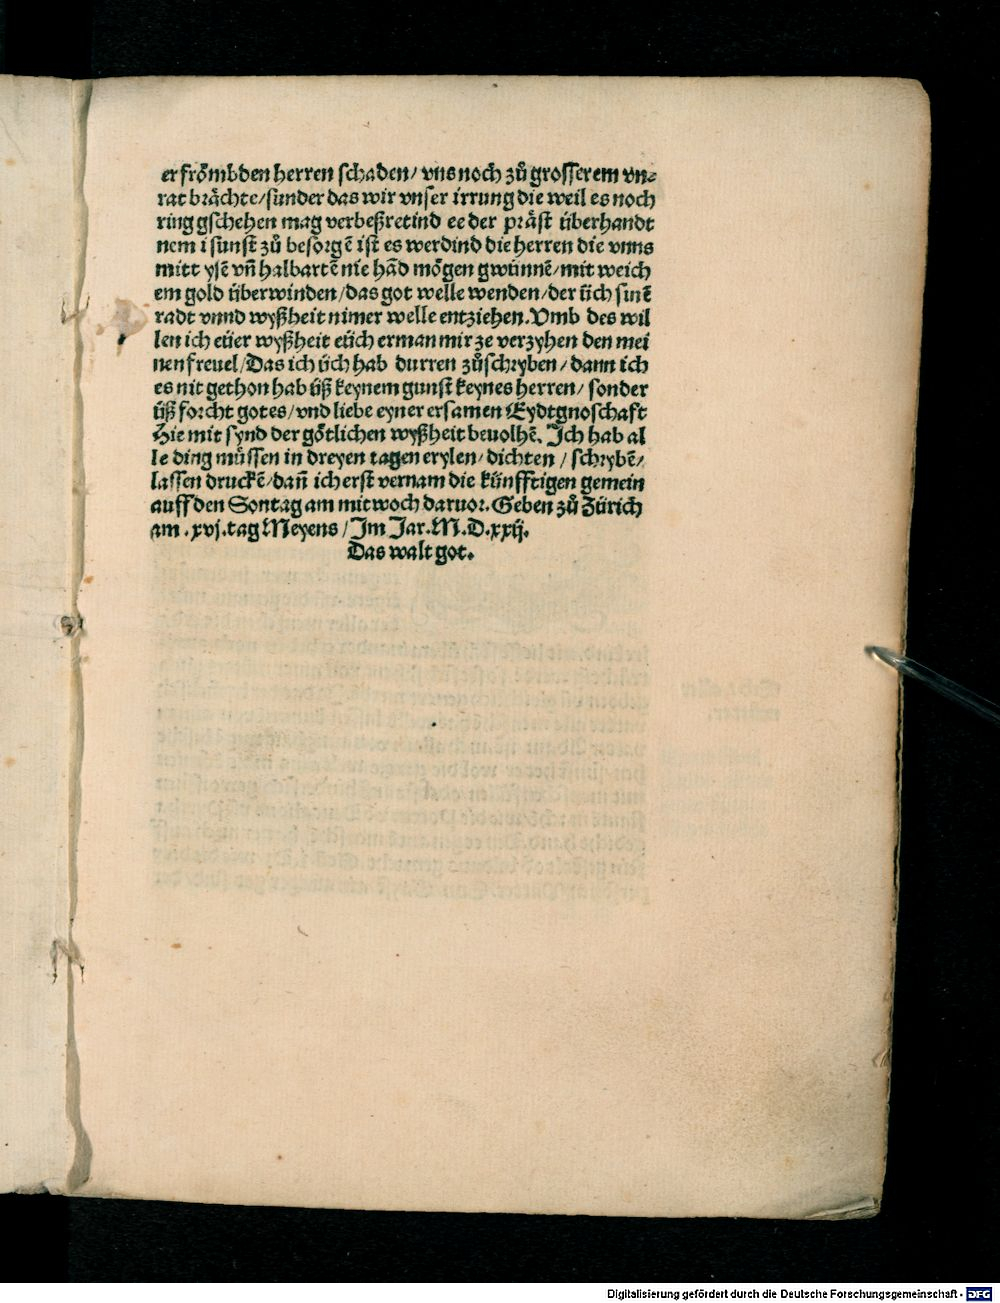 er frõmbden herren schaden/ vns noch zů grosserem vn⸗
rat brächte/ sunder das wir vnser irrung die weil es noch
ring gschehen mag verbeßretind ee der präst überhandt
nem i sunst zů besorgẽ ist es werdind die herren die vnns
mitt ysẽ vñ halbartẽ nie hãd mögen gwünnẽ/ mit weich
em gold überwinden/ das got welle wenden/ der üch sinẽ
radt vnnd wyßheit nimer welle entziehen. Vmb des wil
len ich eüer wyßheit eüch erman mir ze verzyhen den mei
nen freuel/ Das ich üch hab durren zůschryben/ dann ich
es nit gethon hab üß keynem gunst keynes herren/ sonder
üß forcht gotes/ vnd liebe eyner ersamen Eydtgnoschaft
Hie mit synd der götlichen wyßheit beuolhẽ. Ich hab al
le ding müssen in dreyen tagen erylen/ dichten / schrybẽ/
lassen druckẽ/ dañ ich erst vernam die künfftigen gemein
auff den Sontag am mitwoch daruor. Geben zů Zürich
am .xvj. tag Meyens / Im Jar. M. D. xxij.
Das walt got.
Digitalisierung gefördert durch die Deutsche Forschungsgemeinschaft - DFG